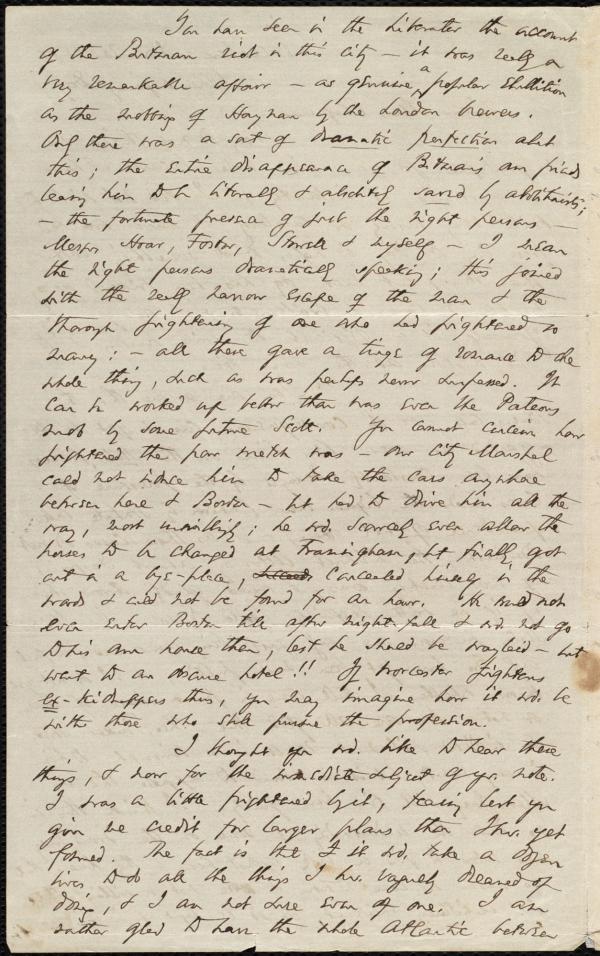 You have seen in the Liberator the account
of the Butman riot in this city — it was really a
very remarkable affair — as genuine a popular Ebullition
as the mobbing of Haynau by the London brewers.
And there was a sort of dramatic perfection abt
this; the entire disappearance of Butman's own friends
leaving him to be literally & absolutely saved by abolitionists;
— the fortunate presence of just the right persons —
Messrs Hoar, Foster, Stowell & myself — I mean
the right persons dramatically speaking; this joined
with the really narrow escape of the man & the
thorough frightening of one who had frightened so
many; — all these gave a tinge of romance to the
whole thing, such as was perhaps never surpassed. It
can be worked up better than was even the Porteous
mob by some future Scott. You cannot conceive how
frightened the poor wretch was — our City Marshal
could not induce him to take the cars anywhere
between here & Boston — but had to drive him all the
way, most unwillingly; he wd. scarcely even allow the
horses to be changed at Framingham, but finally got
out in a bye-place, concealed himself in the
woods & could not be found for an hour. He would not
even enter Boston till after nightfall & wd. not go
to his own house then, lest he should be waylaid — but
went to an obscure hotel!! If Worcester frightens
ex-kidnappers thus, you may imagine how it wd. be
with those who still pursue the profession.
I thought you wd. like to hear these
things, & now for the immediate subject of yr. note.
I was a little frightened by it, fearing lest you
give me credit for larger plans than I hv. yet
formed. The fact is that it wd. take a dozen
lives to do all the things I hv. vaguely dreamed of
doing, & I am not sure even of one. I am
rather glad to have the whole Atlantic between